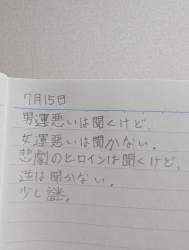 7月15日
男運悪いは聞くけど、
女運悪いは聞かない。
悲劇のヒロインは聞くけど、
逆は聞かない。
少し謎。